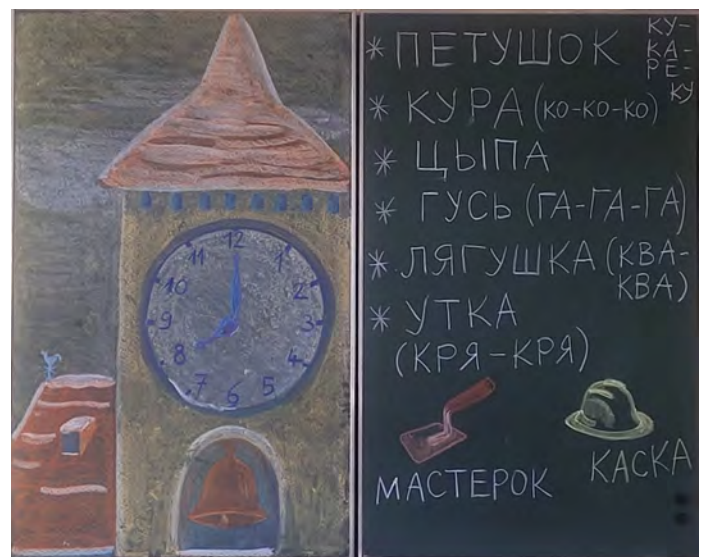 12
11
1
10
2
9
3
8
4
7
5
6
* ПЕТУШОК
КУ-
КА-
РЕ-
КУ
* КУРА (КО-КО-КО)
* ЦЫПА
* ГУСЬ (ГА-ГА-ГА)
* ЛЯГУШКА (КВА-
КВА)
* УТКА
(КРЯ-КРЯ)
МАСТЕРОК
КАСКА